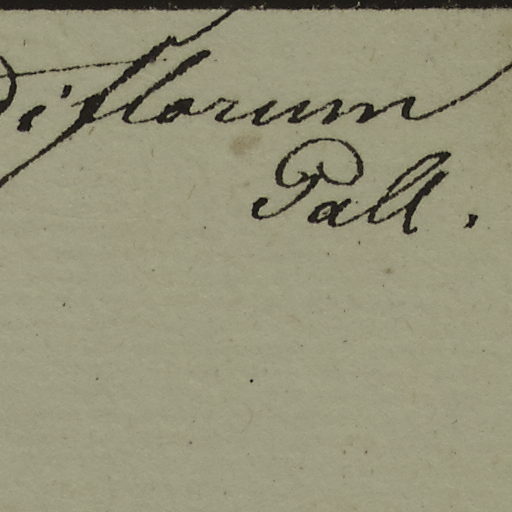 Diflorum
Pall.